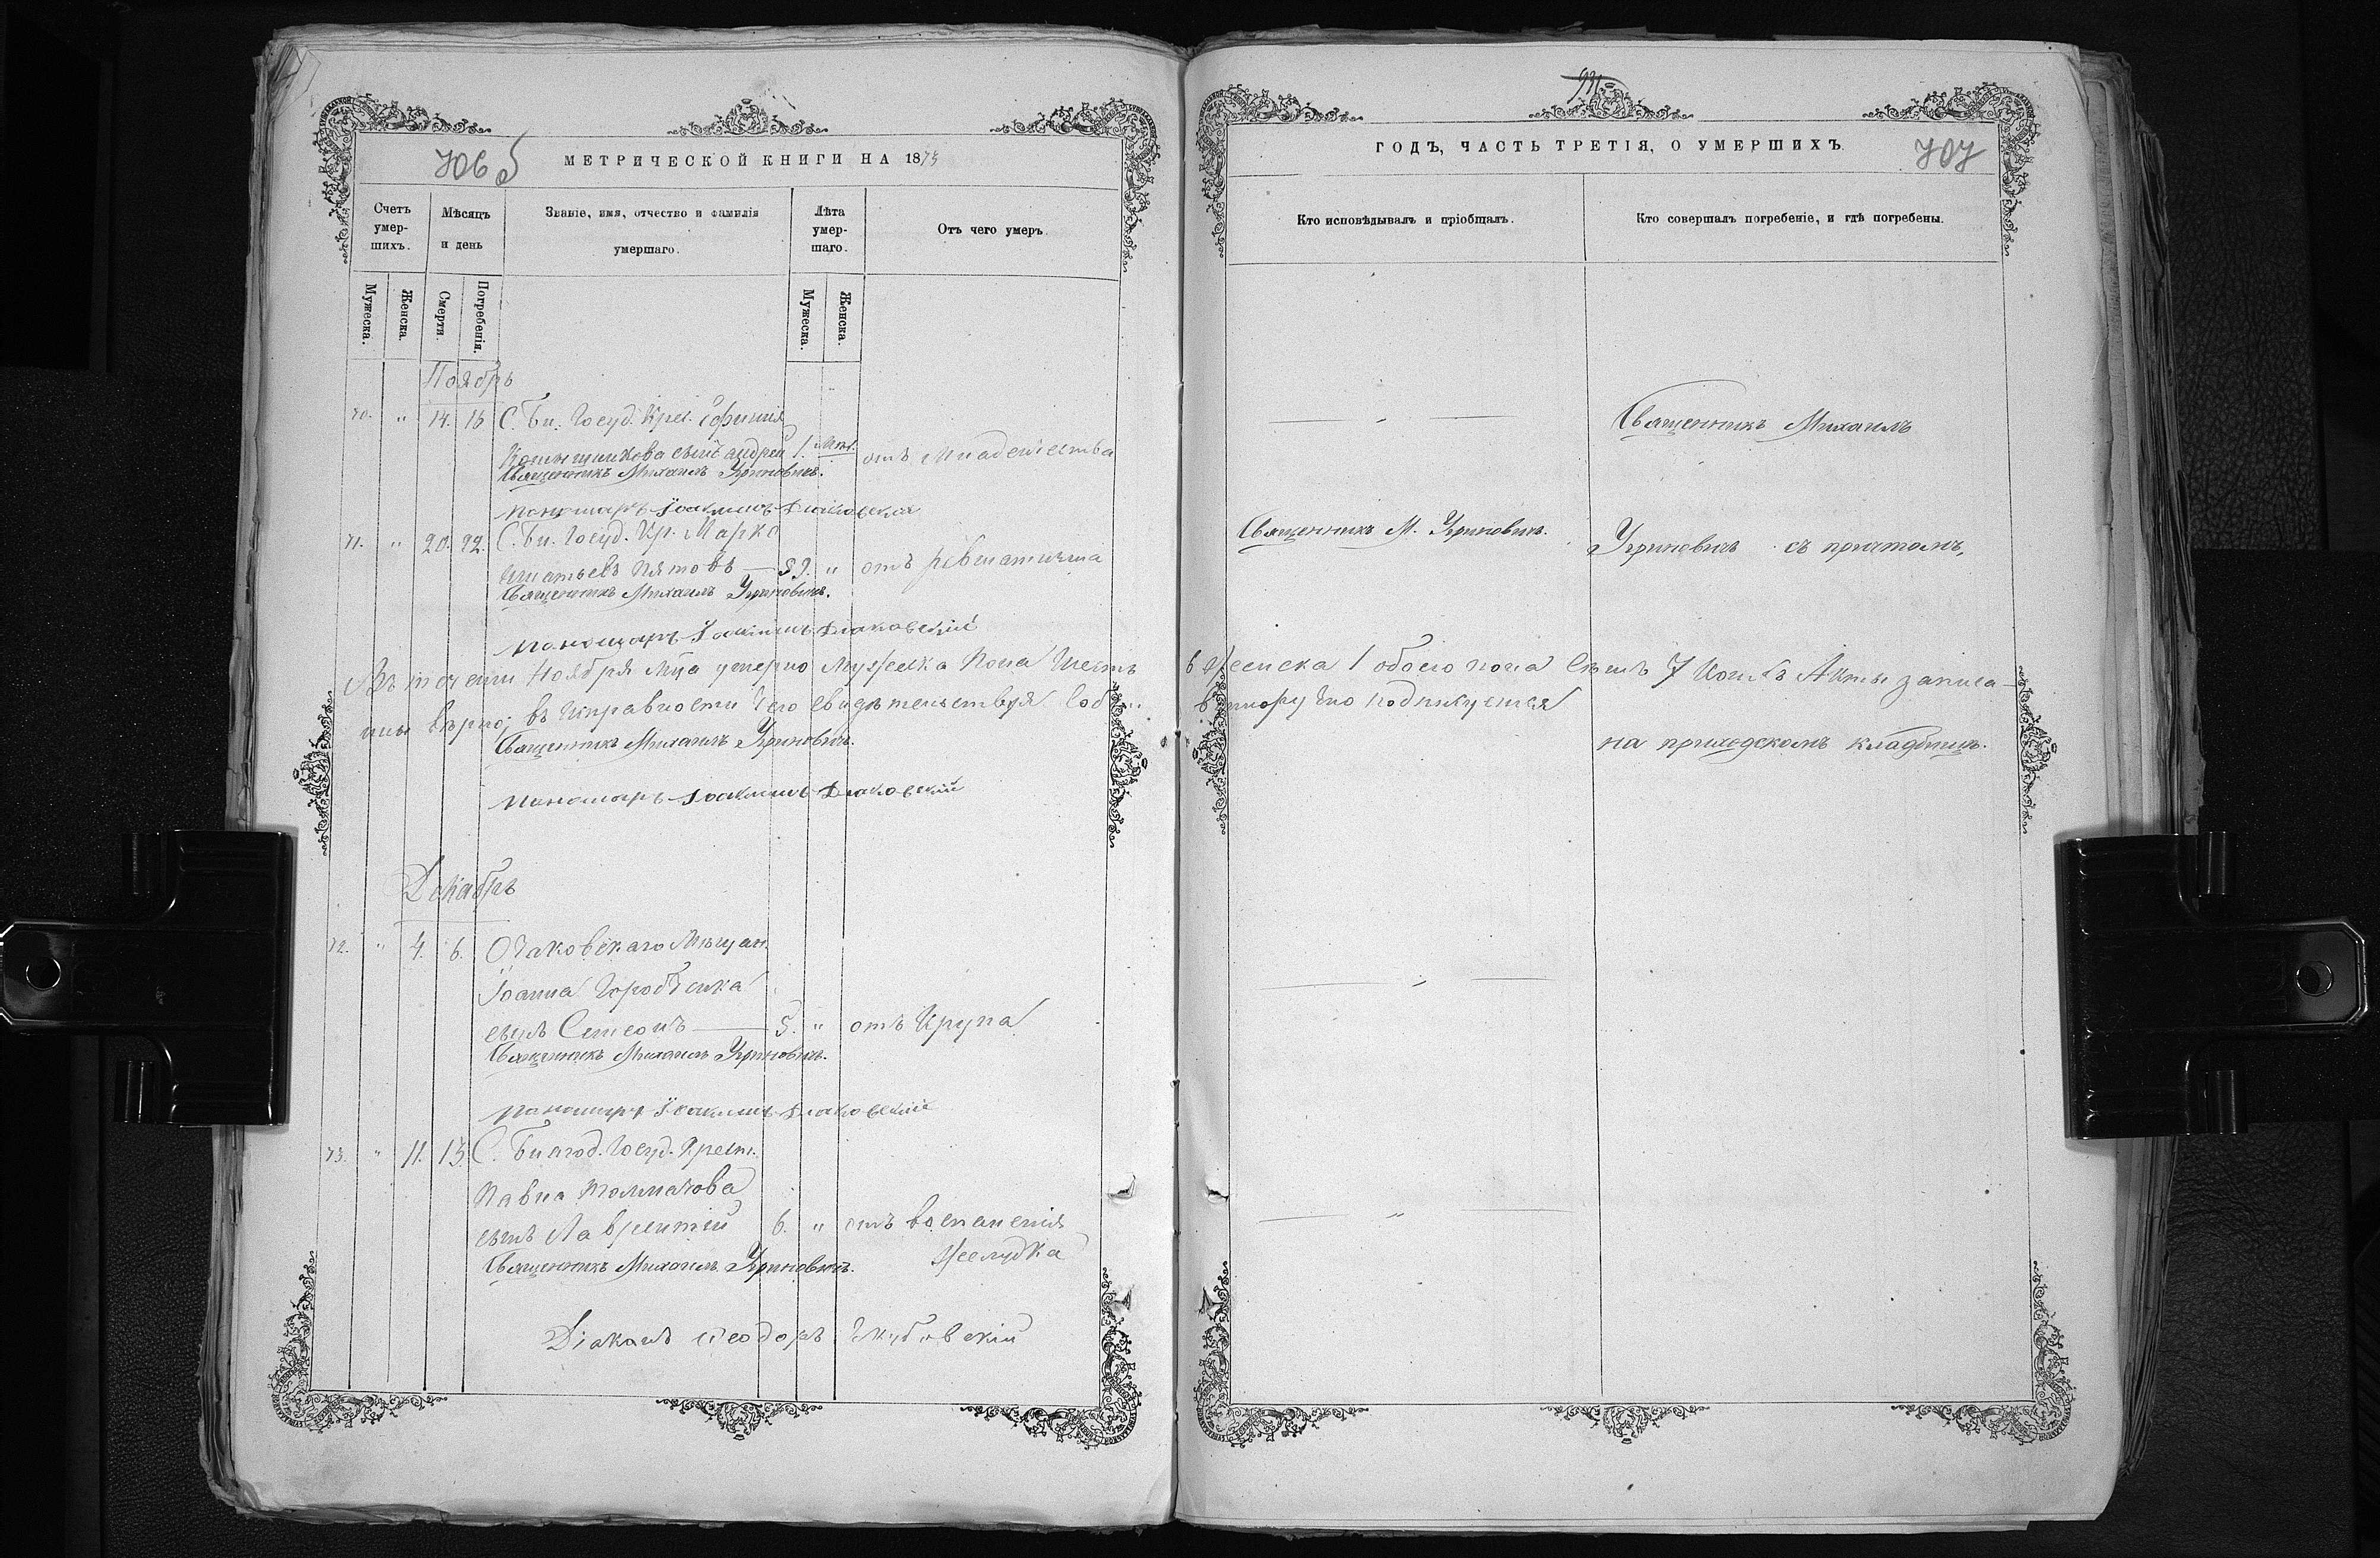 706 б
МЕТРИЧЕСКОЙ КНИГИ НА 1875
Счетъ умер-
шихъ.
Мѣсяцъ
и день
Званіе, имя, отчество и фамилія
умершаго.
Лѣта
умер-
шаго.
Отъ чего умеръ.
Мужеска.
Женска.
Смерти.
Погребенія.
Мужеска.
Женска.
Ноябрь
70. " 14. 15 С. Бл. Госуд. Крес.
сынъ Андрей 1. мѣс. отъ младенчества
Священникъ Михаилъ Угриновичъ.
пономарь Іоакимъ Діаковскій
71. " 20. 22. С. Бл. Госуд. Кр. Марко
Игнатьевъ Пятовъ — 59. " отъ ревматизма
Священникъ Михаилъ Угриновичъ.
пономарь Іоакимъ Діаковскій
Въ теченіи Ноября м-ца умерло Мужеска Пола Шесть
ны вѣрно; въ исправности чего свидѣтельствуя
Священникъ Михаилъ Угриновичъ.
пономарь Іоакимъ Діаковскій
Декабрь
72. " 4. 6. Очаковскаго Мѣщан.
Іоанна Городенка
сынъ Симеонъ — 5. " отъ Крупа
Священникъ Михаилъ Угриновичъ.
пономарь Іоакимъ Діаковскій
73. " 11. 13. С. Благод. Госуд. Крест.
Павла Толмачова
сынъ Лаврентій 6. " отъ воспаленія
желудка
Священникъ Михаилъ Угриновичъ.
Діаконъ Ѳеодоръ
931
ГОДЪ, ЧАСТЬ ТРЕТІЯ, О УМЕРШИХЪ.
707
Кто исповѣдывалъ и пріобщалъ.
Кто совершалъ погребеніе, и гдѣ погребены.
Священникъ Михаилъ
Священникъ М. Угриновичъ.
Угриновичъ съ причтомъ,
6 Женска 1 обоего пола семь 7 Коихъ Акты записа-
подписуемся
на приходскомъ кладбищѣ.